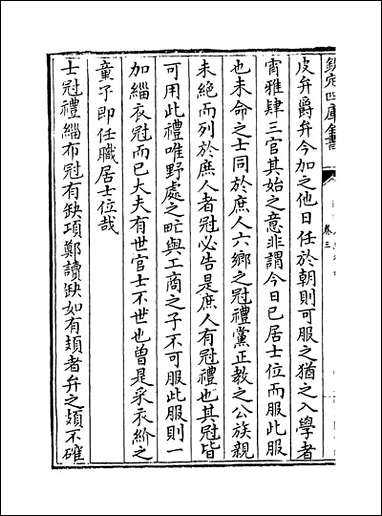 欽定四庫全書
卷三
皮弁爵弁今加之他日任於朝則可服之猶之入學者
宵雅肄三官其始之意非謂今日已居士位而服此服
也未命之士同於庶人六鄉之冠禮黨正教之公族親
未絶而列於庶人者冠必告是庶人有冠禮也其冠皆
可用此禮唯野處之甿與工商之子不可服此服則一
加緇衣冠而已大夫有世官士不世也曾是采衣紒之
童子即任職居士位哉
士冠禮緇布冠有缺項鄭讀缺如有頍者弁之頍不確